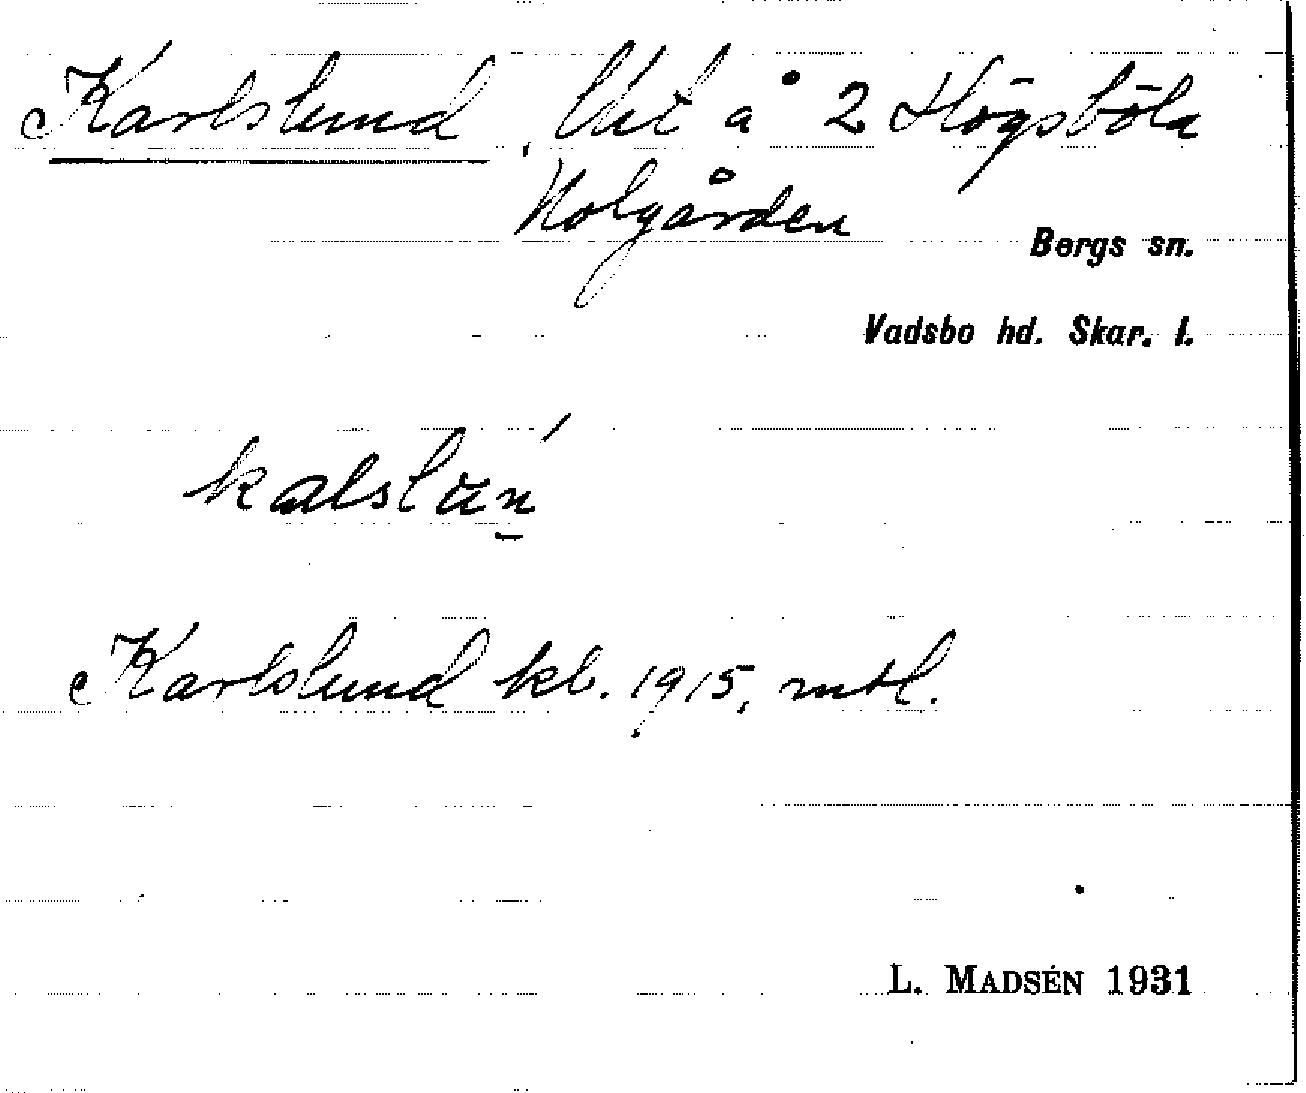 Karlslund, Utj å 2 Högsböla
Holgården
Bergs sn.
Vadsbo hd. Skar. l.
Karlslund kb. 1915, mtl.
L. MADSÉN 1931